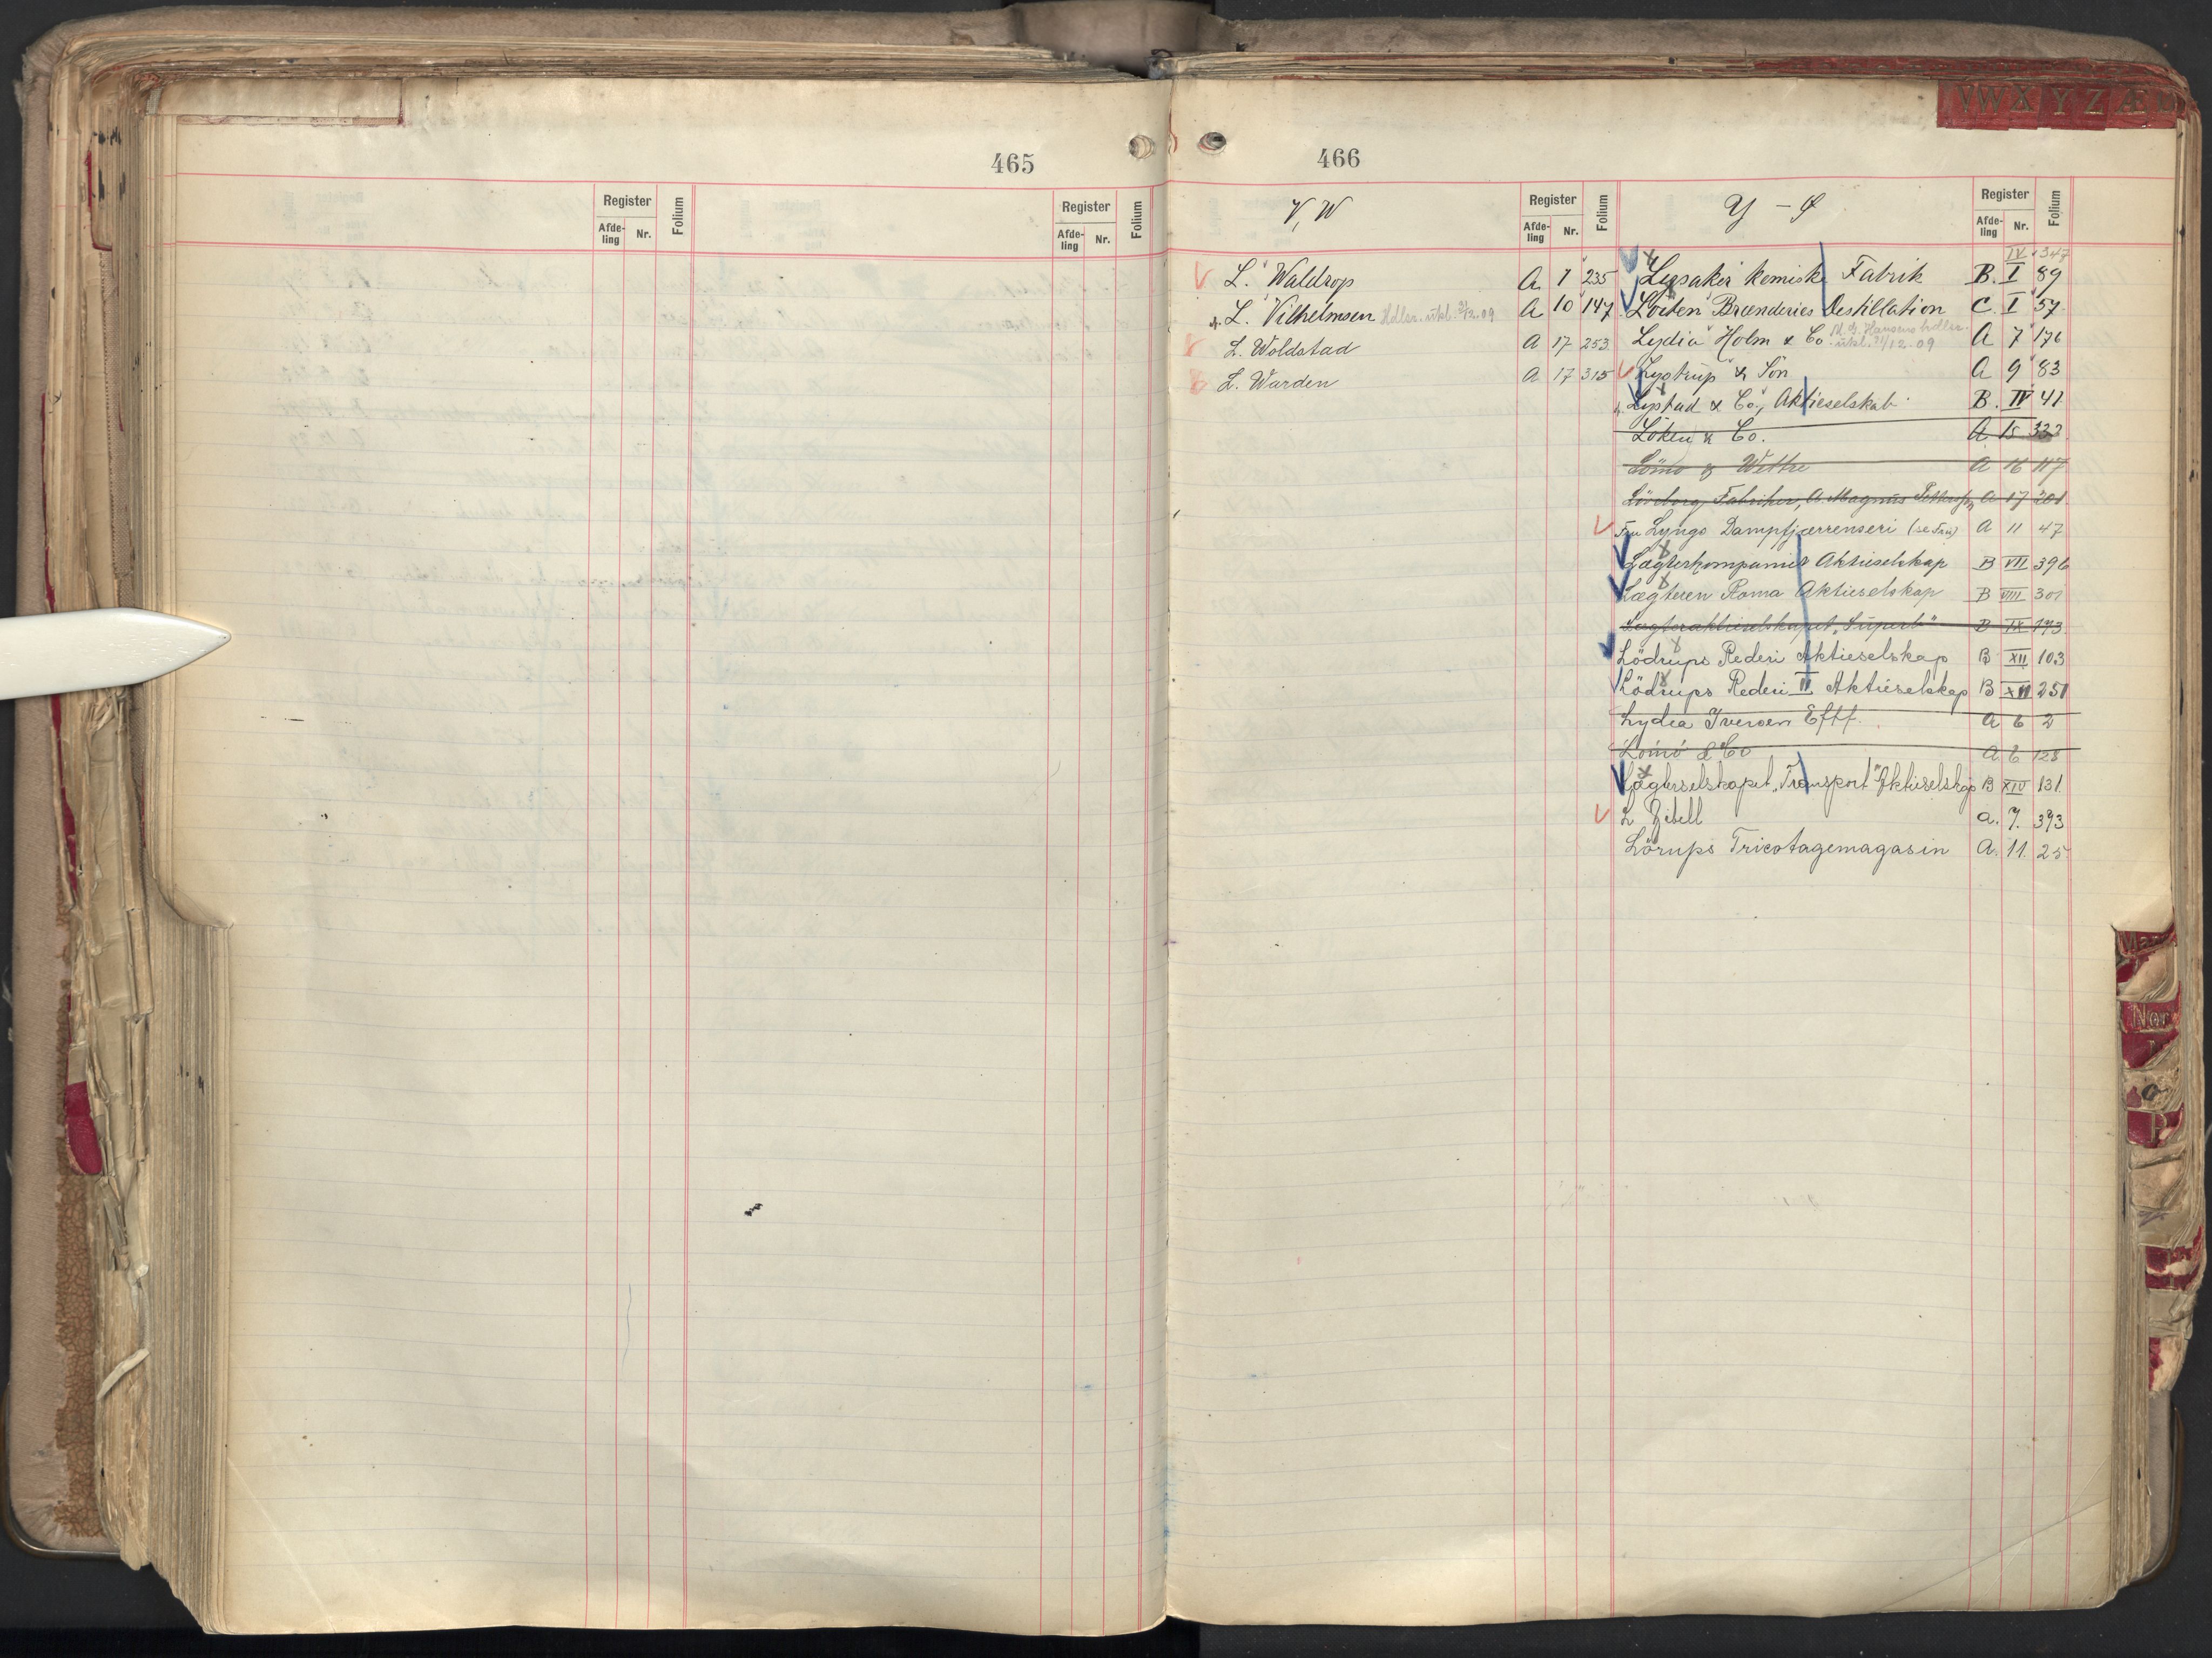 VWXYZÆ
465
Register
Afde-
ling
Nr.
Folium
Register
Afde-
ling
Nr.
Folium
466
V, W
Register
Afde-
ling
Nr.
Folium
L. Waldrop A 1 235
L. Vilhelmsen Hdlsr. utkl. 31/12.09 A 10 147
L. Woldstad A 17 253
L. Warden A 17 315
Y - Ø
Register
Afde-
ling
Nr.
Folium
IV 347
Lysaker kemiske Fabrik B. I 89
Loiten Brænderies Destillation C. I 57
Lydia Holm & Co. Hansens hdlsr. utkl. 31/12-09 A 7 176
Lystrup & Sön A 9 83
Lystad & Co., Aktieselskab B. IV 41
Löken & Co. A 15 333
Lömo & Wettre A 16 117
Lövborg Fabriker, A. Magnus A 17 201
Fru Lyngs Dampfjærrenseri (se Fru) A 11 47
Lægterkompaniet Aktieselskap B VII 396
Lægteren Roma Aktieselskap B VIII 301
Lægteraktieselskapet "Superb" B IX 193
Lödrups Rederi Aktieselskap B XII 103
Lödrups Rederi II Aktieselskap B XII 251
Lydia Iversen Eftf. A 6 2
Lömö & Co A 6 128
Lægterselskapet "Transport" Aktieselskap B XIV 131
L Zibell A. 7. 393
Lörups Tricotagemagasin A. 11. 25
Nor